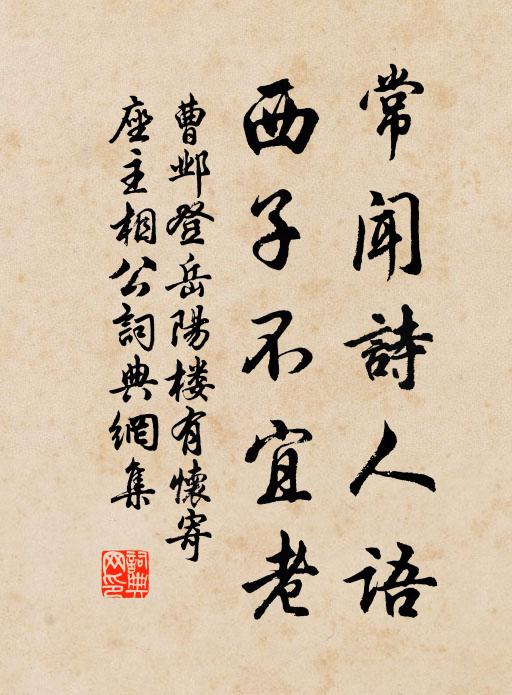 常聞詩人語
西子不宜老
曹邺登岳陽楼有懷寄
座主相公詞典網集
詞典
网印